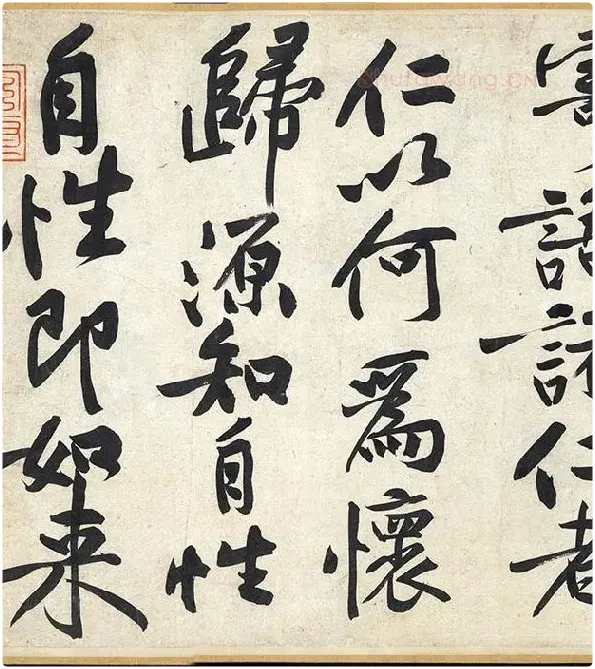 寄語諸仁者
仁以何爲懷
歸源知自性
自性即如来
ShufaWang.CN